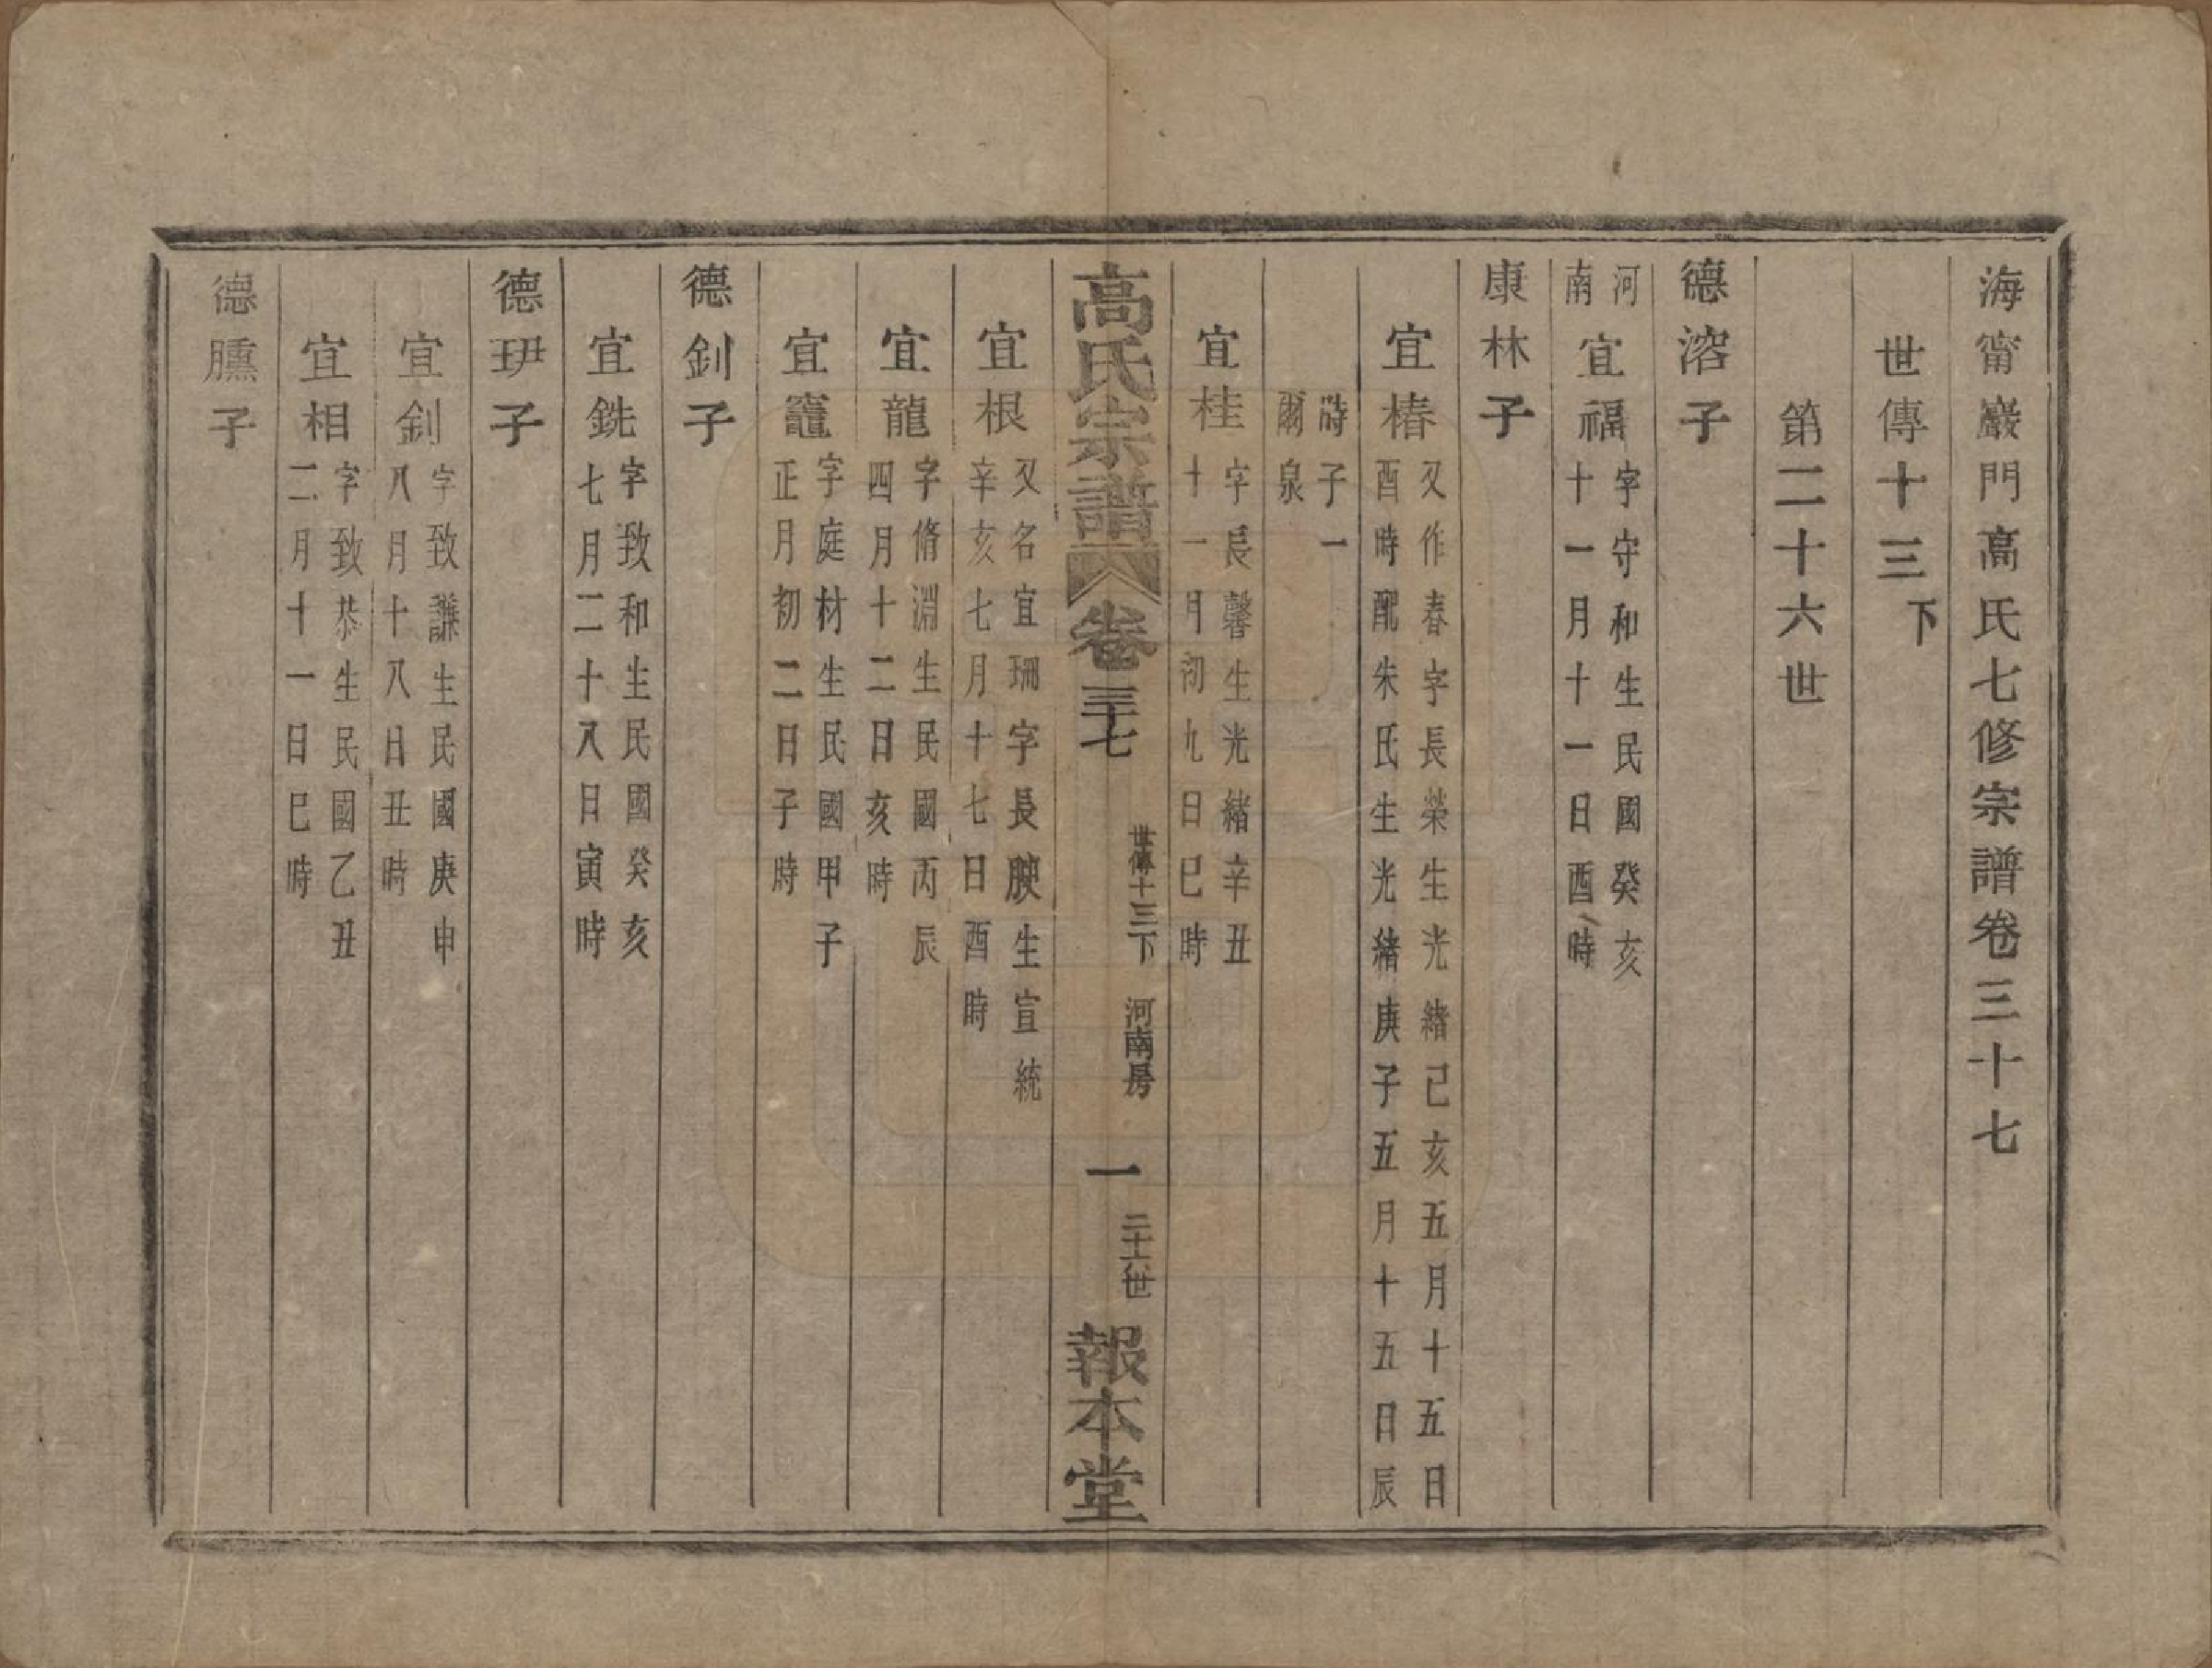 海甯巖門高氏七修宗譜卷三十七
世傳十三下
第二十六世
德溶子
河南
宜福 字守和生民國癸亥
十一月十一日酉時
康林子
宜椿 又作春字長榮生光緒己亥五月十五日
酉時配朱氏生光緒庚子五月十五日辰
時子一
爾泉
宜桂 字長馨生光緒辛丑
十一月初九日巳時
高氏宗譜 卷三十七 世傳十三下 河南房 一 二十六世 報本堂
宜根 又名宜珊字長腴生宣統
辛亥七月十七日酉時
宜龍 字脩淵生民國丙辰
四月十二日亥時
宜竈 字庭材生民國甲子
正月初二日子時
德釗子
宜銑 字致和生民國癸亥
七月二十八日寅時
德㺹子
宜釗 字致謙生民國庚申
八月十八日丑時
宜相 字致恭生民國乙丑
二月十一日巳時
德臐子